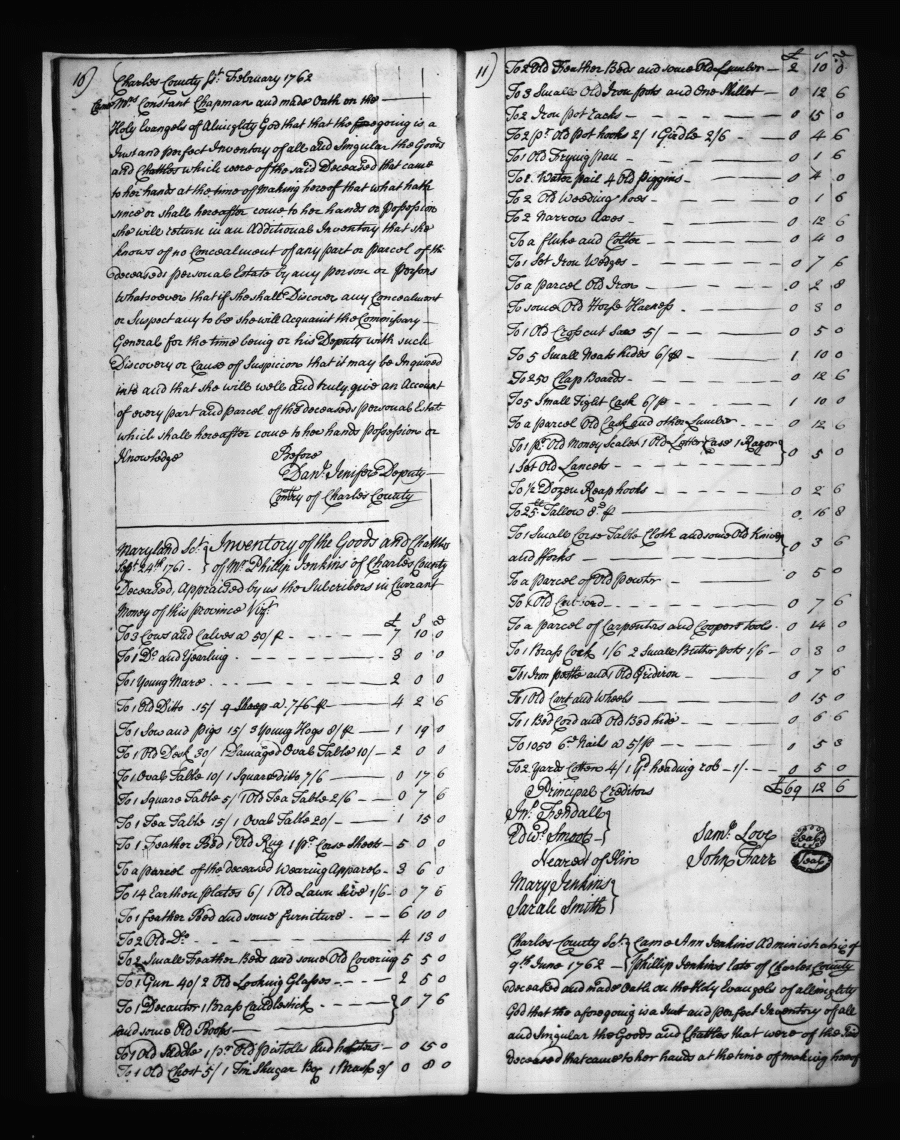 10)
Charles County Sct. February 1762
Came Mrs. Constant Chapman and made Oath on the
Holy Evangels of Almighty God that that the foregoing is a
Just and perfect Inventory of all and Singular the Goods
and Chattles which were of the said Deceased that came
to her hands at the time of making hereof that what hath
since or shall hereafter come to her hands or Possession
she will return in an Additional Inventory that she
knows of no Concealment of any part or parcel of the
Deceaseds personal Estate by any person or Persons
Whatsoever that if she shall Discover any Concealment
or Suspect any to be she will Acquaint the Commissary
General for the time being or his Deputy with such
Discovery or Cause of Suspicion that it may be Inquired
into and that she will well and truly give an Account
of every part and parcel of the deceaseds personal Estate
which shall hereafter come to her hands Possession or
Knowledge Before
Danl. Jenifer Deputy
Comry of Charles County
Maryland Sct. Inventory of the Goods and Chattles
Sept 24th 1761. of Mr Phillip Jenkins of Charles County
Deceased, Appraised by us the Subcribers in Currant
Money of this province Vizt.
£ S D
To 3 Cows and Calves a 50/ p 7 10 0
To 1 Do. and Yearling 3 0 0
To 1 Young Mare 2 0 0
To 1 Old Ditto 15/ 9 Sheep a 7/6 p 4 2 6
To 1 Sow and Pigs 15/ 3 Young Hogs 8/ p 1 19 0
To 1 Old Desk 30/ 1 Damaged Oval Table 10/ 2 0 0
To 1 Oval Table 10/ 1 Square ditto 7/6 0 17 6
To 1 Square Table 5/ 1 Old Tea Table 2/6 0 7 6
To 1 Tea Table 15/ 1 Oval Table 20/ 1 15 0
To 1 Feather Bed 1 Old Rug 1 pr. Corse Sheets 5 0 0
To a parcel of the deceased Wearing Apparel 3 6 0
To 14 Earthen plates 6/ 1 Old Lawn Sive 1/6 0 7 6
To 1 feather Bed and some furniture 6 10 0
To 2 Old Do. 4 13 0
To 2 Small Feather Beds and some Old Covering 5 5 0
To 1 Gun 40/ 2 Old Looking Glasses 2 5 0
To 1 Decanter 1 Brass Candlestick 0 7 6
and some Old Books
To 1 Old Saddle 1 pr Old Pistols and holsters 0 15 0
To 1 Old Chest 5/ 1 Tin Shugar Box 1 Brush 3/ 0 8 0
11)
£ S D
To 2 Old Feather Beds and some Old Lumber 2 10 0
To 3 Small Old Iron pots and One Skillet 0 12 6
To 2 Iron pot racks 0 15 0
To 2 pr. Old pot hooks 2/ 1 Gridle 2/6 0 4 6
To 1 Old Frying pan 0 1 6
To 2 Water pail 4 Old Piggins 0 4 0
To 2 Old Weeding hoes 0 1 6
To 2 Narrow axes 0 12 6
To a fluke and Colter 0 4 0
To 1 Set Iron Wedges 0 7 6
To a parcel Old Iron 0 2 8
To some Old Horse Harness 0 3 0
To 1 Old Cross cut Saw 5/ 0 5 0
To 5 Small Neats hides 6/ p 1 10 0
To 250 Clap Boards 0 12 6
To 5 Small Tight Cask 6/ p 1 10 0
To a parcel Old Cask and other Lumber 0 12 6
To 1 pr. Old Money Scales 1 Old Letter Case 1 Razor
1 Set Old Lancets 0 5 0
To ½ Dozen Reap hooks 0 2 6
To 25 lb. Tallow 8d. p 0 16 8
To 1 Small Corse Table Cloth and some Old Knives
and fforks 0 3 6
To a parcel of Old pewter 0 5 0
To 0 7 6
To a parcel of Carpenters and Coopers tools 0 14 0
To 1 Brass Cock 1/6 2 Small Butter pots 1/6 0 3 0
To 1 Iron and 1 Old Gridiron 0 7 6
To 1 Old Cart and Wheels 0 15 0
To 1 Bed Cord and Old Bed hide 0 6 6
To 1050 6d. Nails a 5/ p 0 5 3
To 2 Yards Cotten 4/ 1 1/ 0 5 0
Principal Creditors £69 12 6
Jno. Thendall
Edwd. Smoot Saml. Love Seal
Nearest of Kin John Farr Seal
Mary Jenkins
Sarah Smith
Charles County Sct. Came Ann Jenkins Administratrix of
9th June 1762 Phillip Jenkins late of Charles County
Deceased and made Oath on the Holy Evangels of allmighty
God that the aforegoing is a Just and perfect Inventory of all
and Singular the Goods and Chattles that were of the said
Deceased that came to her hands at the time of making hereof